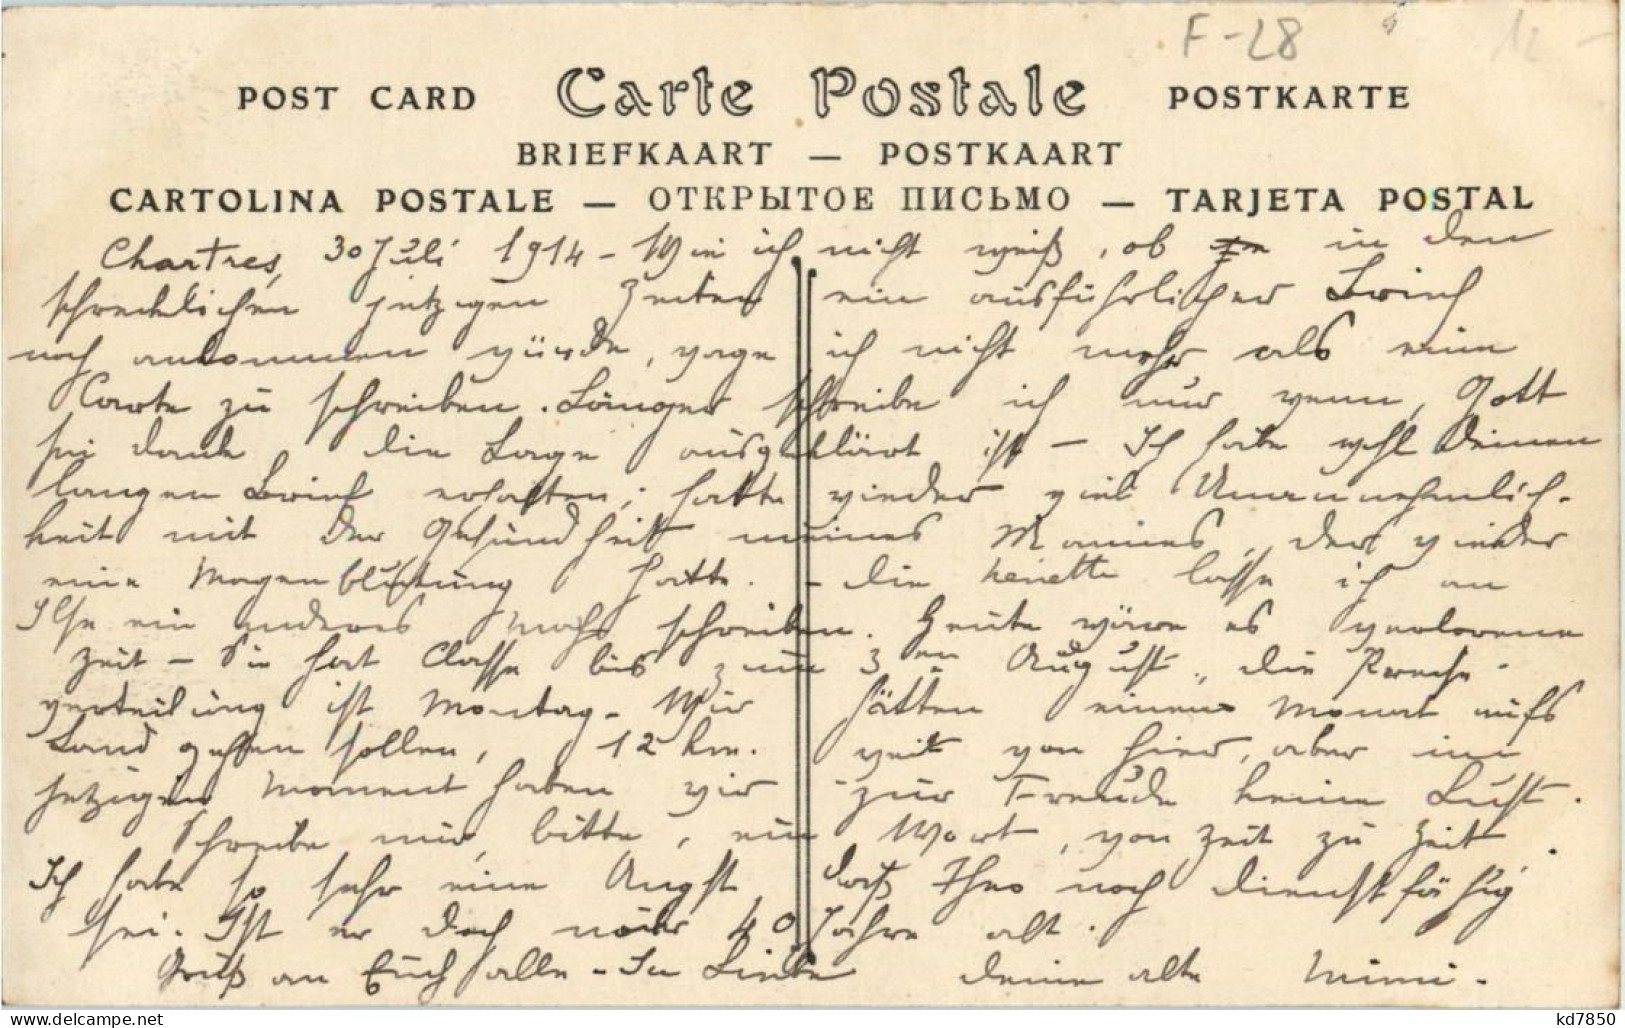 F-28
12 -
POST CARD Carte Postale POSTKARTE
BRIEFKAART — POSTKAART
CARTOLINA POSTALE — ОТКРЫТОЕ ПИСЬМО — TARJETA POSTAL
Chartres, 30 Juli 1914 - Wie ich nicht weiß, ob in den
schrecklichen jetzigen Zeiten ein ausführlicher Brief
noch ankommen würde, wage ich nicht mehr als eine
Carte zu schreiben. Länger schreibe ich nur wenn, Gott
sei dank die Lage ausgeklärt ist - Ich habe wohl Deinen
langen Brief erhalten; hatte wieder viel Unannehmlich-
keit mit der Gesundheit meines Mannes, der wieder
eine Magenblutung hatte. - die lasse ich an
Ilse ein anderes Mahl schreiben. Heute wäre es verlorene
Zeit - Sie hat Classe bis zum 3en August, die Preise-
verteilung ist Montag. Wir hätten einen Monat aufs
Land gehen sollen, 12 km. weit von hier, aber im
jetzigen Moment haben wir zur Freude keine Lust.
Schreibe mir, bitte, ein Wort, von Zeit zu Zeit.
Ich habe so sehr eine Angst daß Theo noch dienstfähig
sei. Ist er doch 40 Jahre alt.
Gruß an Euch alle - In Liebe deine alte Mimi -
kd7850